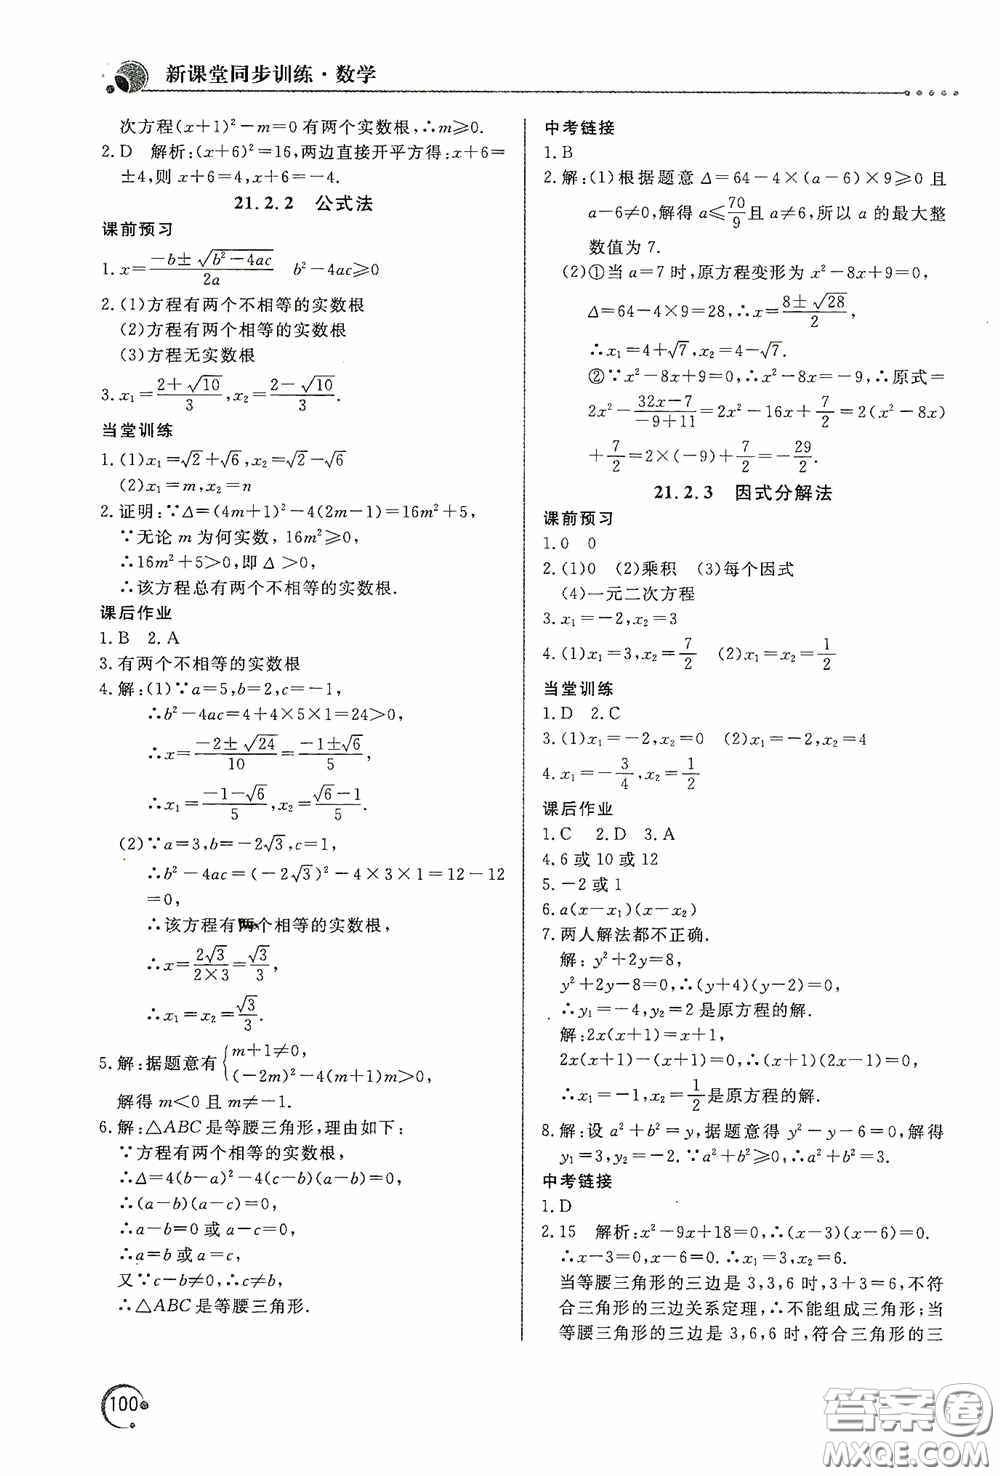 新课堂同步训练·数学
次方程(x+1)²-m=0有两个实数根,∴m⩾0.
2.D 解析:(x+6)²=16,两边直接开平方得:x+6=
±4,则 x+6=4,x+6=-4.
21.2.2 公式法
课前预习
1.x=(-b±√(b²-4ac))/2a b²-4ac⩾0
2.(1)方程有两个不相等的实数根
(2)方程有两个相等的实数根
(3)方程无实数根
3.x₁=(2+√10)/3,x₂=(2-√10)/3.
当堂训练
1.(1)x₁=√2+√6,x₂=√2-√6
(2)x₁=m,x₂=n
2.证明:∵Δ=(4m+1)²-4(2m-1)=16m²+5,
∵无论 m 为何实数,16m²⩾0,
∴16m²+5>0,即 Δ>0,
∴该方程总有两个不相等的实数根.
课后作业
1.B 2.A
3.有两个不相等的实数根
4.解:(1)∵a=5,b=2,c=-1,
∴b²-4ac=4+4×5×1=24>0,
∴x=(-2±√24)/10=(-1±√6)/5,
∴x₁=(-1-√6)/5,x₂=(√6-1)/5.
(2)∵a=3,b=-2√3,c=1,
∴b²-4ac=(-2√3)²-4×3×1=12-12
=0,
∴该方程有两个相等的实数根,
∴x=2√3/(2×3)=√3/3,
∴x₁=x₂=√3/3.
5.解:据题意有{m+1≠0,
(-2m)²-4(m+1)m>0,
解得 m<0 且 m≠-1.
6.解:△ABC是等腰三角形,理由如下:
∵方程有两个相等的实数根,
∴Δ=4(b-a)²-4(c-b)(a-b)=0,
∴(a-b)(a-c)=0,
∴a-b=0 或 a-c=0,
∴a=b 或 a=c,
又∵c-b≠0,∴c≠b,
∴△ABC是等腰三角形.
100
中考链接
1.B
2.解:(1)根据题意 Δ=64-4×(a-6)×9⩾0 且
a-6≠0,解得 a⩽70/9且 a≠6,所以 a 的最大整
数值为 7.
(2)①当 a=7 时,原方程变形为 x²-8x+9=0,
Δ=64-4×9=28,∴x=(8±√28)/2,
∴x₁=4+√7,x₂=4-√7.
②∵x²-8x+9=0,∴x²-8x=-9,∴原式=
2x²-(32x-7)/(-9+11)=2x²-16x+7/2=2(x²-8x)
+7/2=2×(-9)+7/2=-29/2.
21.2.3 因式分解法
课前预习
1.0 0
2.(1)0 (2)乘积 (3)每个因式
(4)一元二次方程
3.x₁=-2,x₂=3
4.(1)x₁=3,x₂=7/2 (2)x₁=2,x₂=1/2
当堂训练
1.D 2.C
3.(1)x₁=-2,x₂=0 (2)x₁=-2,x₂=4
4.x₁=-3/4,x₂=1/2
课后作业
1.C 2.D 3.A
4.6 或 10 或 12
5.-2 或 1
6.a(x-x₁)(x-x₂)
7.两人解法都不正确.
解:y²+2y=8,
y²+2y-8=0,∴(y+4)(y-2)=0,
∴y₁=-4,y₂=2 是原方程的解.
解:2x(x+1)=x+1,
2x(x+1)-(x+1)=0,∴(x+1)(2x-1)=0,
∴x₁=-1,x₂=1/2是原方程的解.
8.解:设 a²+b²=y,据题意得 y²-y-6=0,解得
y₁=3,y₂=-2.∵a²+b²⩾0,∴a²+b²=3.
中考链接
1.D
2.15 解析:x²-9x+18=0,∴(x-3)(x-6)=0.
∴x-3=0,x-6=0.∴x₁=3,x₂=6.
当等腰三角形的三边是 3,3,6 时,3+3=6,不符
合三角形的三边关系定理,∴不能组成三角形;当
等腰三角形的三边是 3,6,6 时,符合三角形的三
答案卷
MXQE.COM